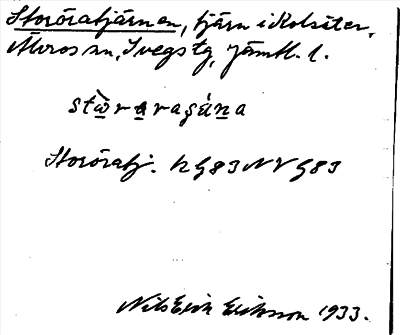 Storöratjärnen, tjärn i Kolsäter,
Älvros sn, Svegs tg, Jämtl. l.
stòraragǻna
Storöratj. h G83 NV G83
Nils Erik Eriksson 1933.